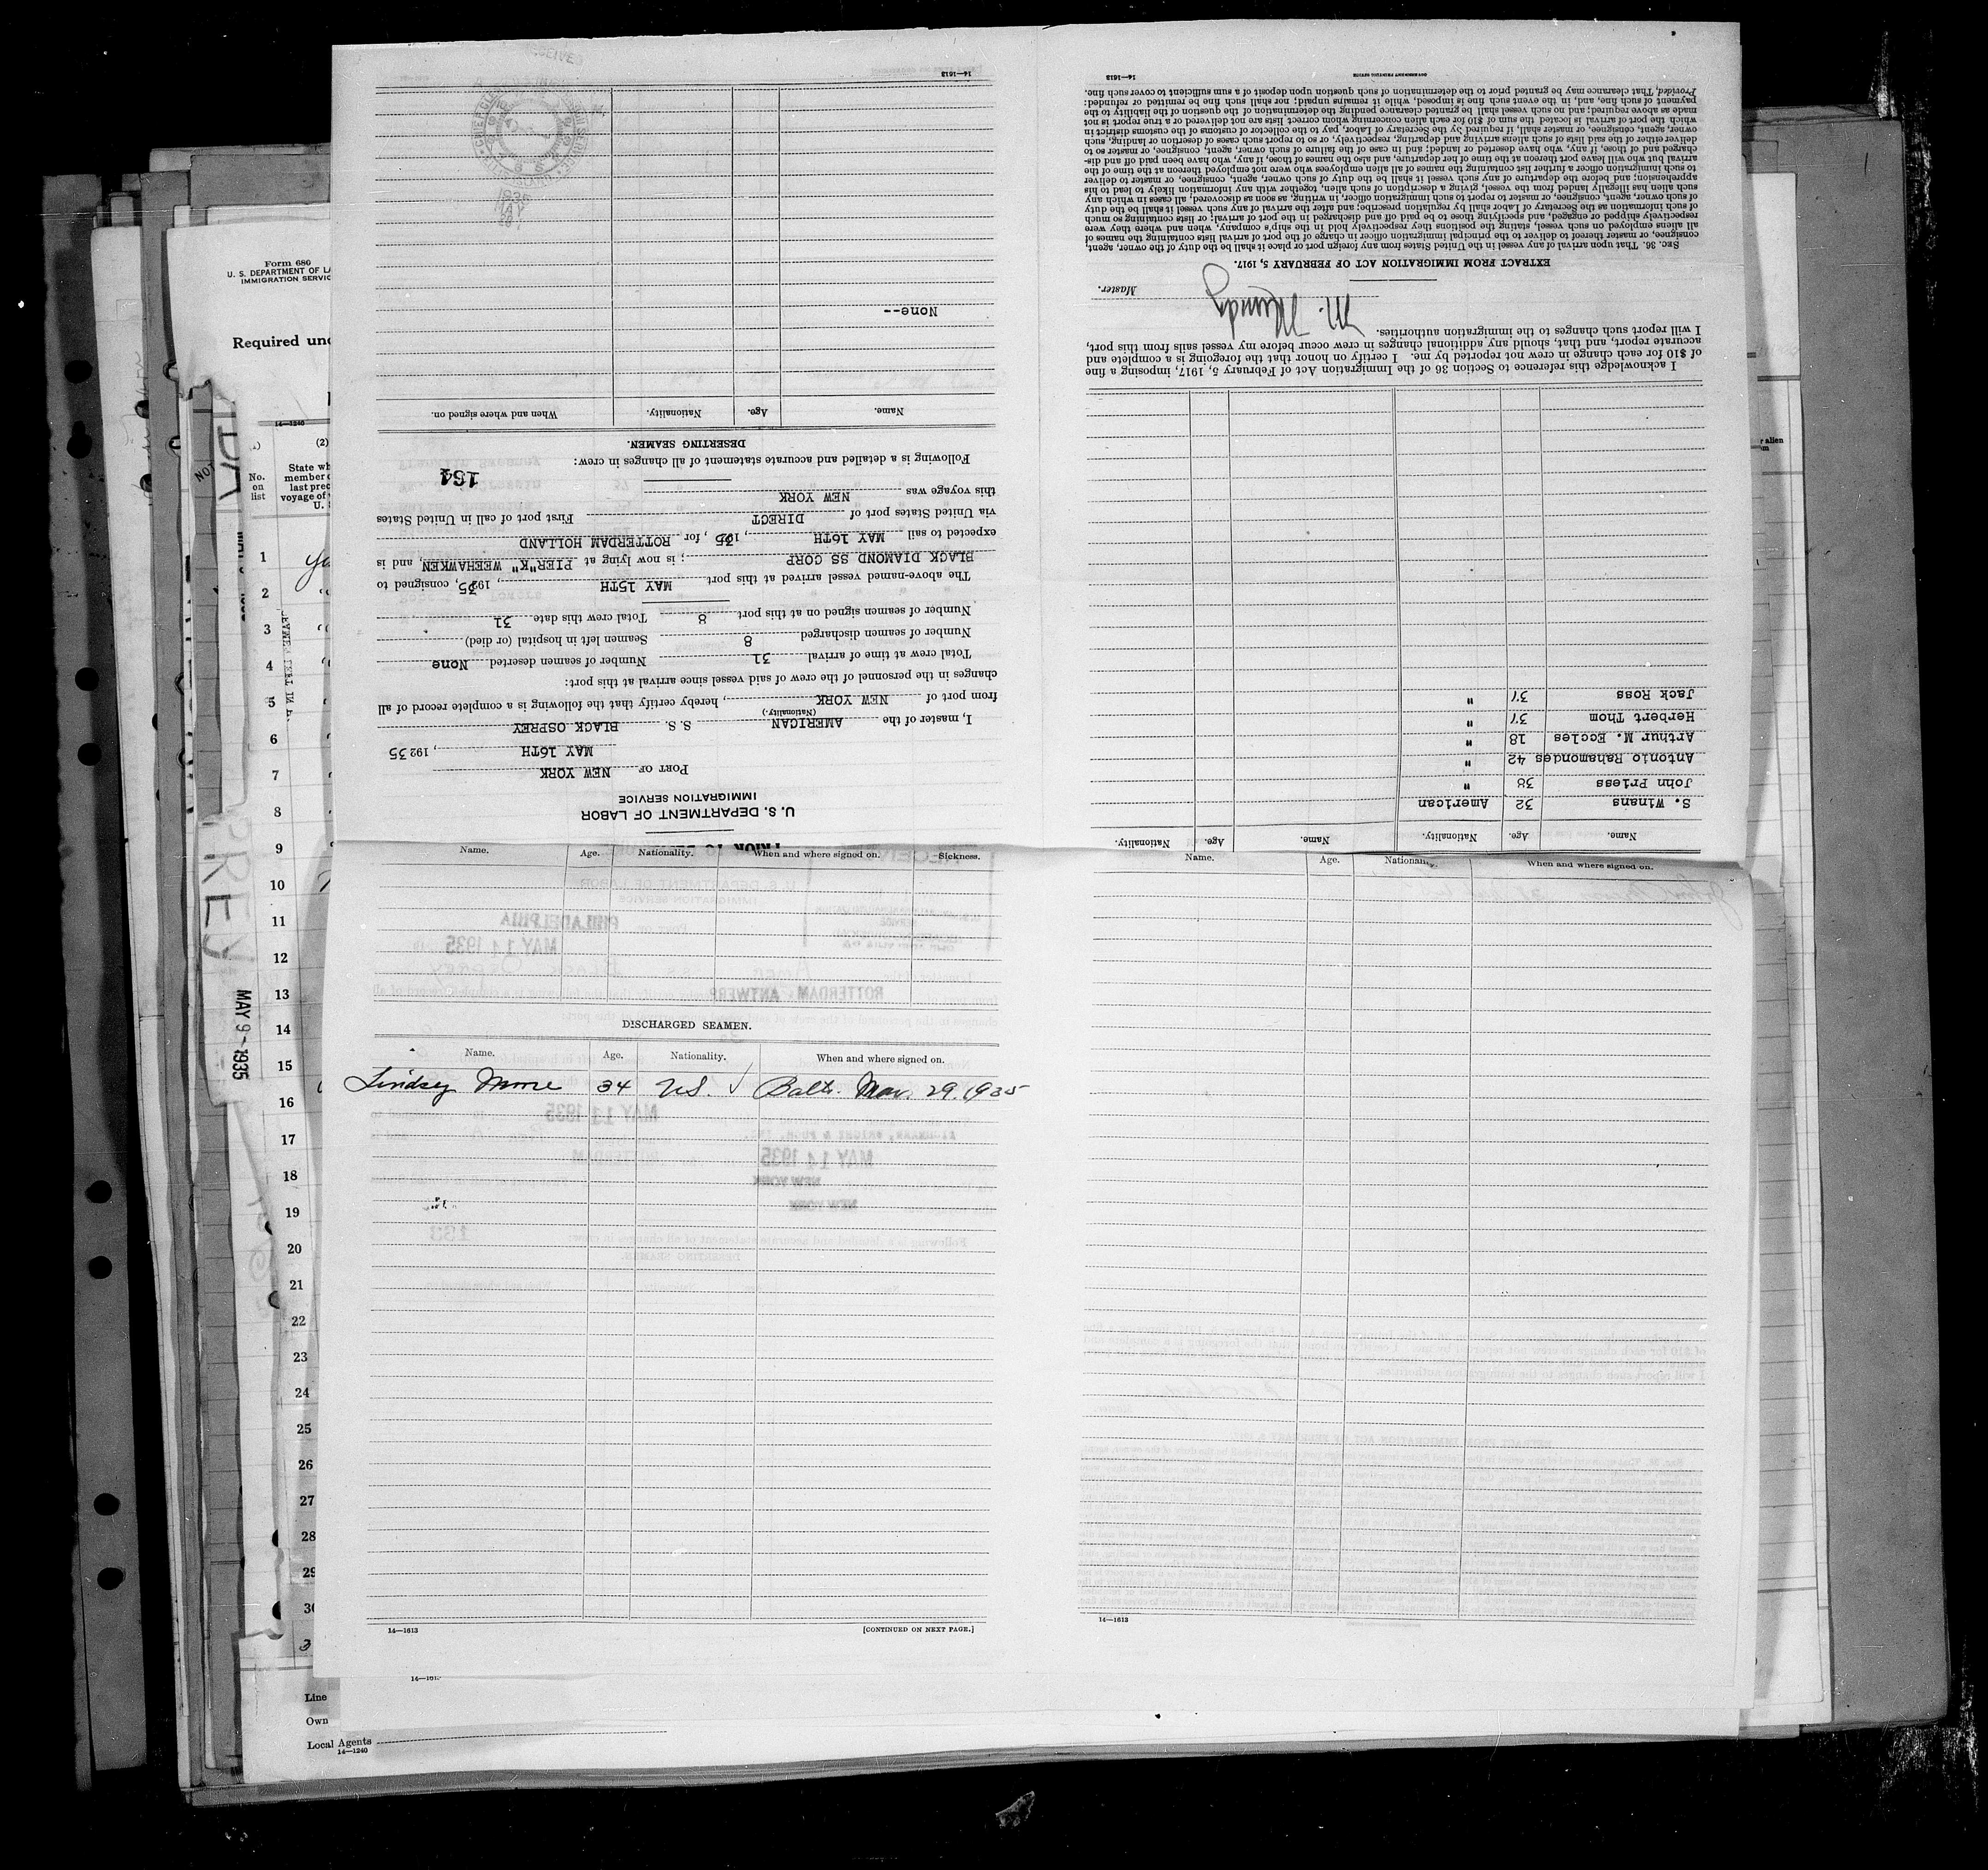 Form 680
U. S. DEPARTMENT OF LA
IMMIGRATION SERVIC
Required und
14—1240
(2)
No. on list
State wh
member o
last prec
voyage of
U. S
1
2
3
4
5
6
7
8
9
10
11
12
13
14
15
16
17
18
19
20
21
22
23
24
25
26
27
28
29
30
3
MAY 9-1935
Line
Own
Local Agents
14—1240
U. S. DEPARTMENT OF LABOR
IMMIGRATION SERVICE
PORT OF NEW YORK
MAY 16TH, 19235
I, master of the AMERICAN S. S. BLACK OSPREY
(Nationality.)
from port of NEW YORK, hereby certify that the following is a complete record of all
changes in the personnel of the crew of said vessel since arrival at this port:
Total crew at time of arrival 31 Number of seamen deserted None
Number of seamen discharged 8 Seamen left in hospital (or died)
Number of seamen signed on at this port 8 Total crew this date 31
The above-named vessel arrived at this port MAY 15TH, 1935, consigned to
BLACK DIAMOND SS CORP; is now lying at PIER"K" WEEHAWKEN, and is
expected to sail MAY 16TH, 1935, for ROTTERDAM HOLLAND
via United States port of DIRECT First port of call in United States
this voyage was NEW YORK
164
Following is a detailed and accurate statement of all changes in crew:
DESERTING SEAMEN.
Name. Age. Nationality. When and where signed on.
None--
14—1613
Name. Age. Nationality. Name. Age. Nationality.
S. Winans 32 American
John Priess 38 "
Antonio Bahamondes 42 "
Arthur M. Eccles 18 "
Herbert Thom 37 "
Jack Ross 37 "
I acknowledge this reference to Section 36 of the Immigration Act of February 5, 1917, imposing a fine
of $10 for each change in crew not reported by me. I certify on honor that the foregoing is a complete and
accurate report, and that, should any additional changes in crew occur before my vessel sails from this port,
I will report such changes to the immigration authorities.
M. Mundy
Master.
EXTRACT FROM IMMIGRATION ACT OF FEBRUARY 5, 1917.
SEC. 36. That upon arrival of any vessel in the United States from any foreign port or place it shall be the duty of the owner, agent,
consignee, or master thereof to deliver to the principal immigration officer in charge of the port of arrival lists containing the names of
all aliens employed on such vessel, stating the positions they respectively hold in the ship's company, when and where they were
respectively shipped or engaged, and specifying those to be paid off and discharged in the port of arrival; or lists containing so much
of such information as the Secretary of Labor shall by regulation prescribe; and after the arrival of any such vessel it shall be the duty
of such owner, agent, consignee, or master to report to such immigration officer, in writing, as soon as discovered, all cases in which any
such alien has illegally landed from the vessel, giving a description of such alien, together with any information likely to lead to his
apprehension; and before the departure of any such vessel it shall be the duty of such owner, agent, consignee, or master to deliver
to such immigration officer a further list containing the names of all alien employees who were not employed thereon at the time of the
arrival but who will leave port thereon at the time of her departure, and also the names of those, if any, who have been paid off and dis-
charged and of those, if any, who have deserted or landed; and in case of the failure of such owner, agent, consignee, or master so to
deliver either of the said lists of such aliens arriving and departing, respectively, or so to report such cases of desertion or landing, such
owner, agent, consignee, or master, shall, if required by the Secretary of Labor, pay to the collector of customs of the customs district in
which the port of arrival is located the sum of $10 for each alien concerning whom correct lists are not delivered or a true report is not
made as above required; and no such vessel shall be granted clearance pending the determination of the question of the liability to the
payment of such fine, and, in the event such fine is imposed, while it remains unpaid; nor shall such fine be remitted or refunded:
Provided, That clearance may be granted prior to the determination of such question upon deposit of a sum sufficient to cover such fine.
14—1613 GOVERNMENT PRINTING OFFICE
Name. Age. Nationality. When and where signed on. Sickness.
DISCHARGED SEAMEN.
Name. Age. Nationality. When and where signed on.
Lindsey Moore 34 US. ✓ Balto. Mar. 29. 1935
14—1613 [CONTINUED ON NEXT PAGE.]
Name. Age. When and where signed on.
14—1613